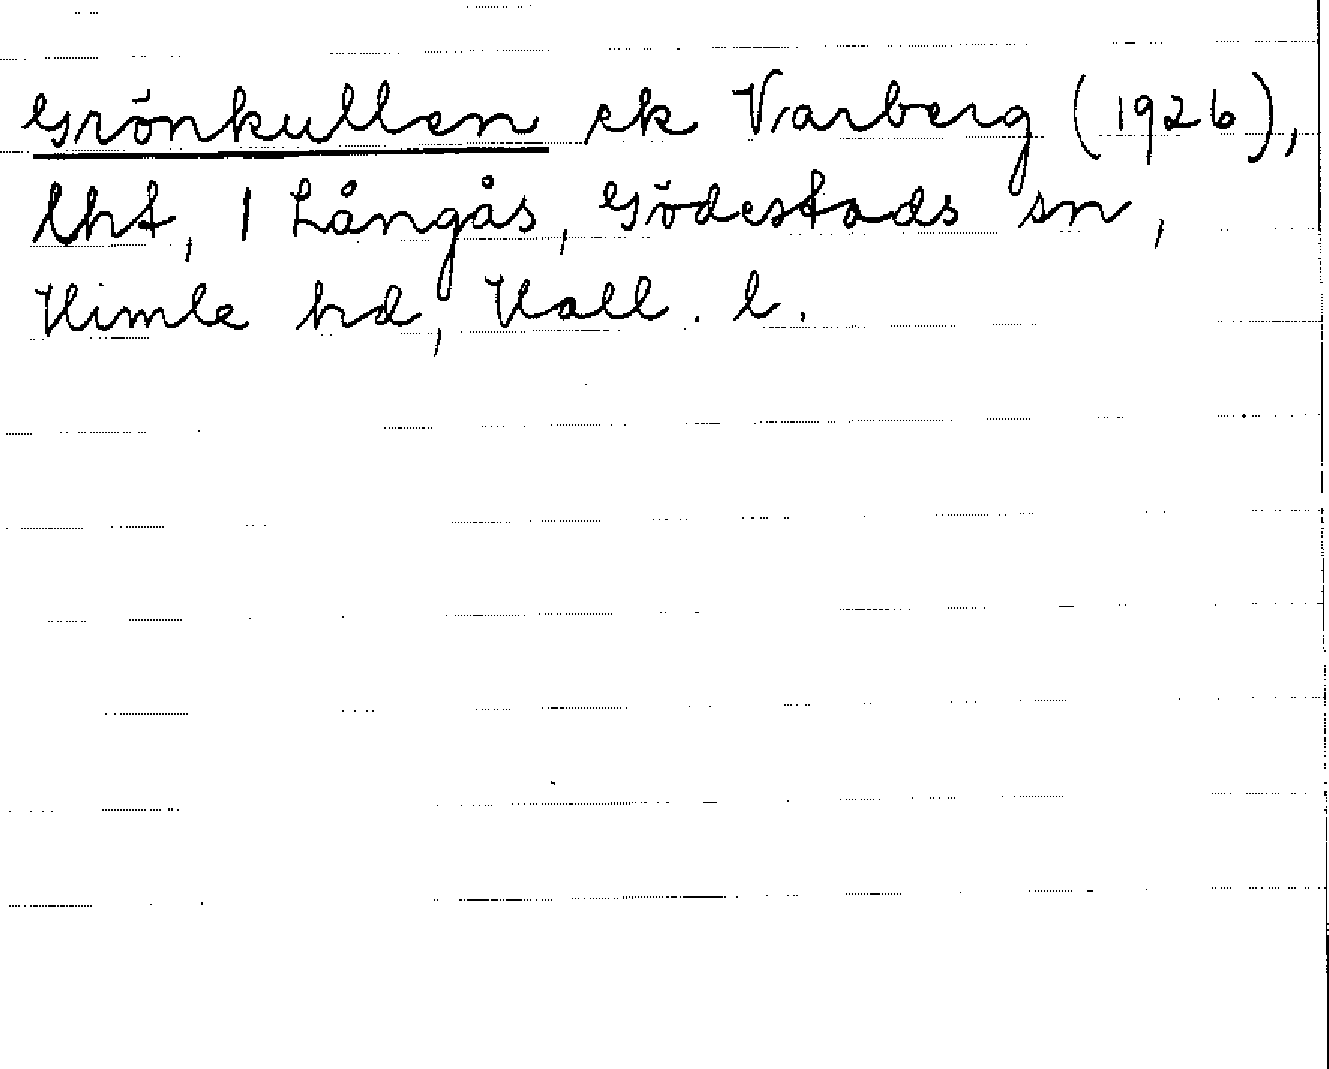 Grönkullen ek Varberg (1926),
lht, 1 Långås, Gödestads sn,
Himle hd, Hall. l.